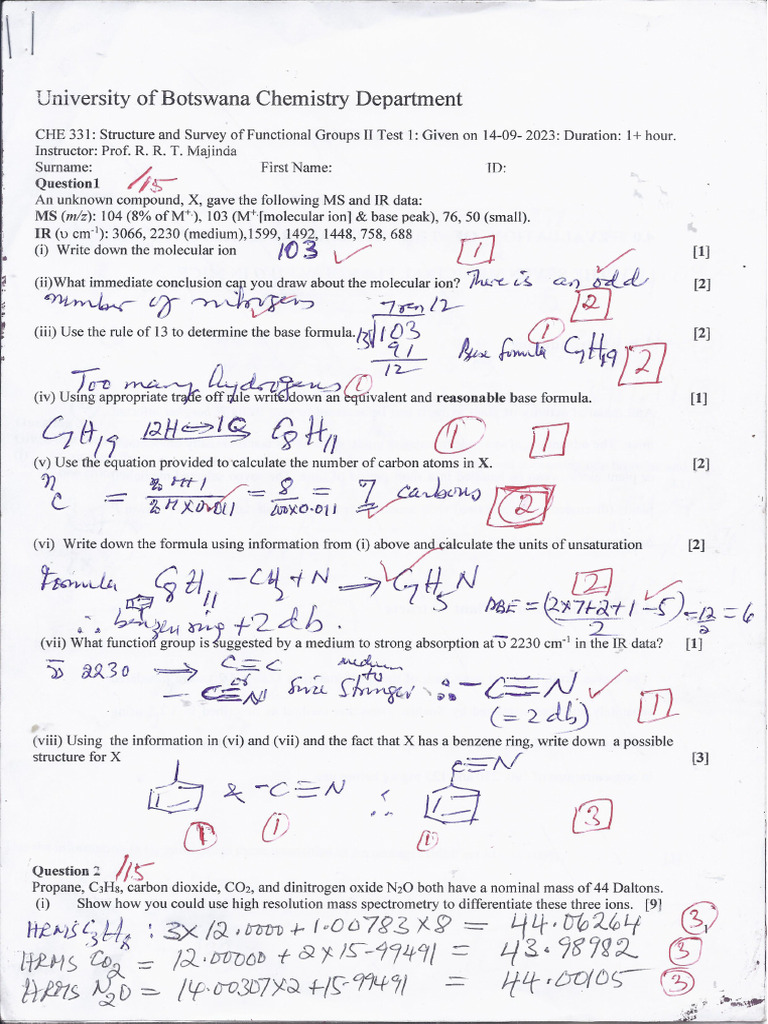 University of Botswana Chemistry Department
CHE 331: Structure and Survey of Functional Groups II Test 1: Given on 14-09- 2023: Duration: 1+ hour.
Instructor: Prof. R. R. T. Majinda
Surname: First Name: ID:
Question1 /15
An unknown compound, X, gave the following MS and IR data:
MS (m/z): 104 (8% of M⁺·), 103 (M⁺·[molecular ion] & base peak), 76, 50 (small).
IR (υ cm⁻¹): 3066, 2230 (medium),1599, 1492, 1448, 758, 688
(i) Write down the molecular ion 103 1 [1]
(ii)What immediate conclusion can you draw about the molecular ion? There is an odd [2]
number of nitrogens 2
7 rem 12
(iii) Use the rule of 13 to determine the base formula. 13 103 1 [2]
91 Base formula C7H19 2
12
Too many hydrogens 1
(iv) Using appropriate trade off rule write down an equivalent and reasonable base formula. [1]
C7H19 12H ⟷ 1C C8H11 1 1
(v) Use the equation provided to calculate the number of carbon atoms in X. [2]
nc = = 8/100x0.011 = 7 carbons 2
(vi) Write down the formula using information from (i) above and calculate the units of unsaturation [2]
Formula C8H11 -CH + N → C7H5N 2 DBE = (2x7+2+1-5)/2 = 12/2 = 6
∴ benzen ring + 2 db.
(vii) What function group is suggested by a medium to strong absorption at ῡ 2230 cm⁻¹ in the IR data? [1]
ῡ 2230 → C≡C medium
or to
-C≡N Size Stronger ∴ -C≡N 1
(= 2 db)
(viii) Using the information in (vi) and (vii) and the fact that X has a benzene ring, write down a possible
structure for X [3]
& -C≡N ∴ C≡N 3
1 1 1
Question 2 /15
Propane, C₃H₈, carbon dioxide, CO₂, and dinitrogen oxide N₂O both have a nominal mass of 44 Daltons.
(i) Show how you could use high resolution mass spectrometry to differentiate these three ions. [9]
HRMS C3H8 : 3x12.0000+1.00783x8 = 44.06264 3
HRMS CO2 = 12.00000 + 2x15-99491 = 43.98982 3
HRMS N2O = 14.00307x2+15-99491 = 44.00105 3